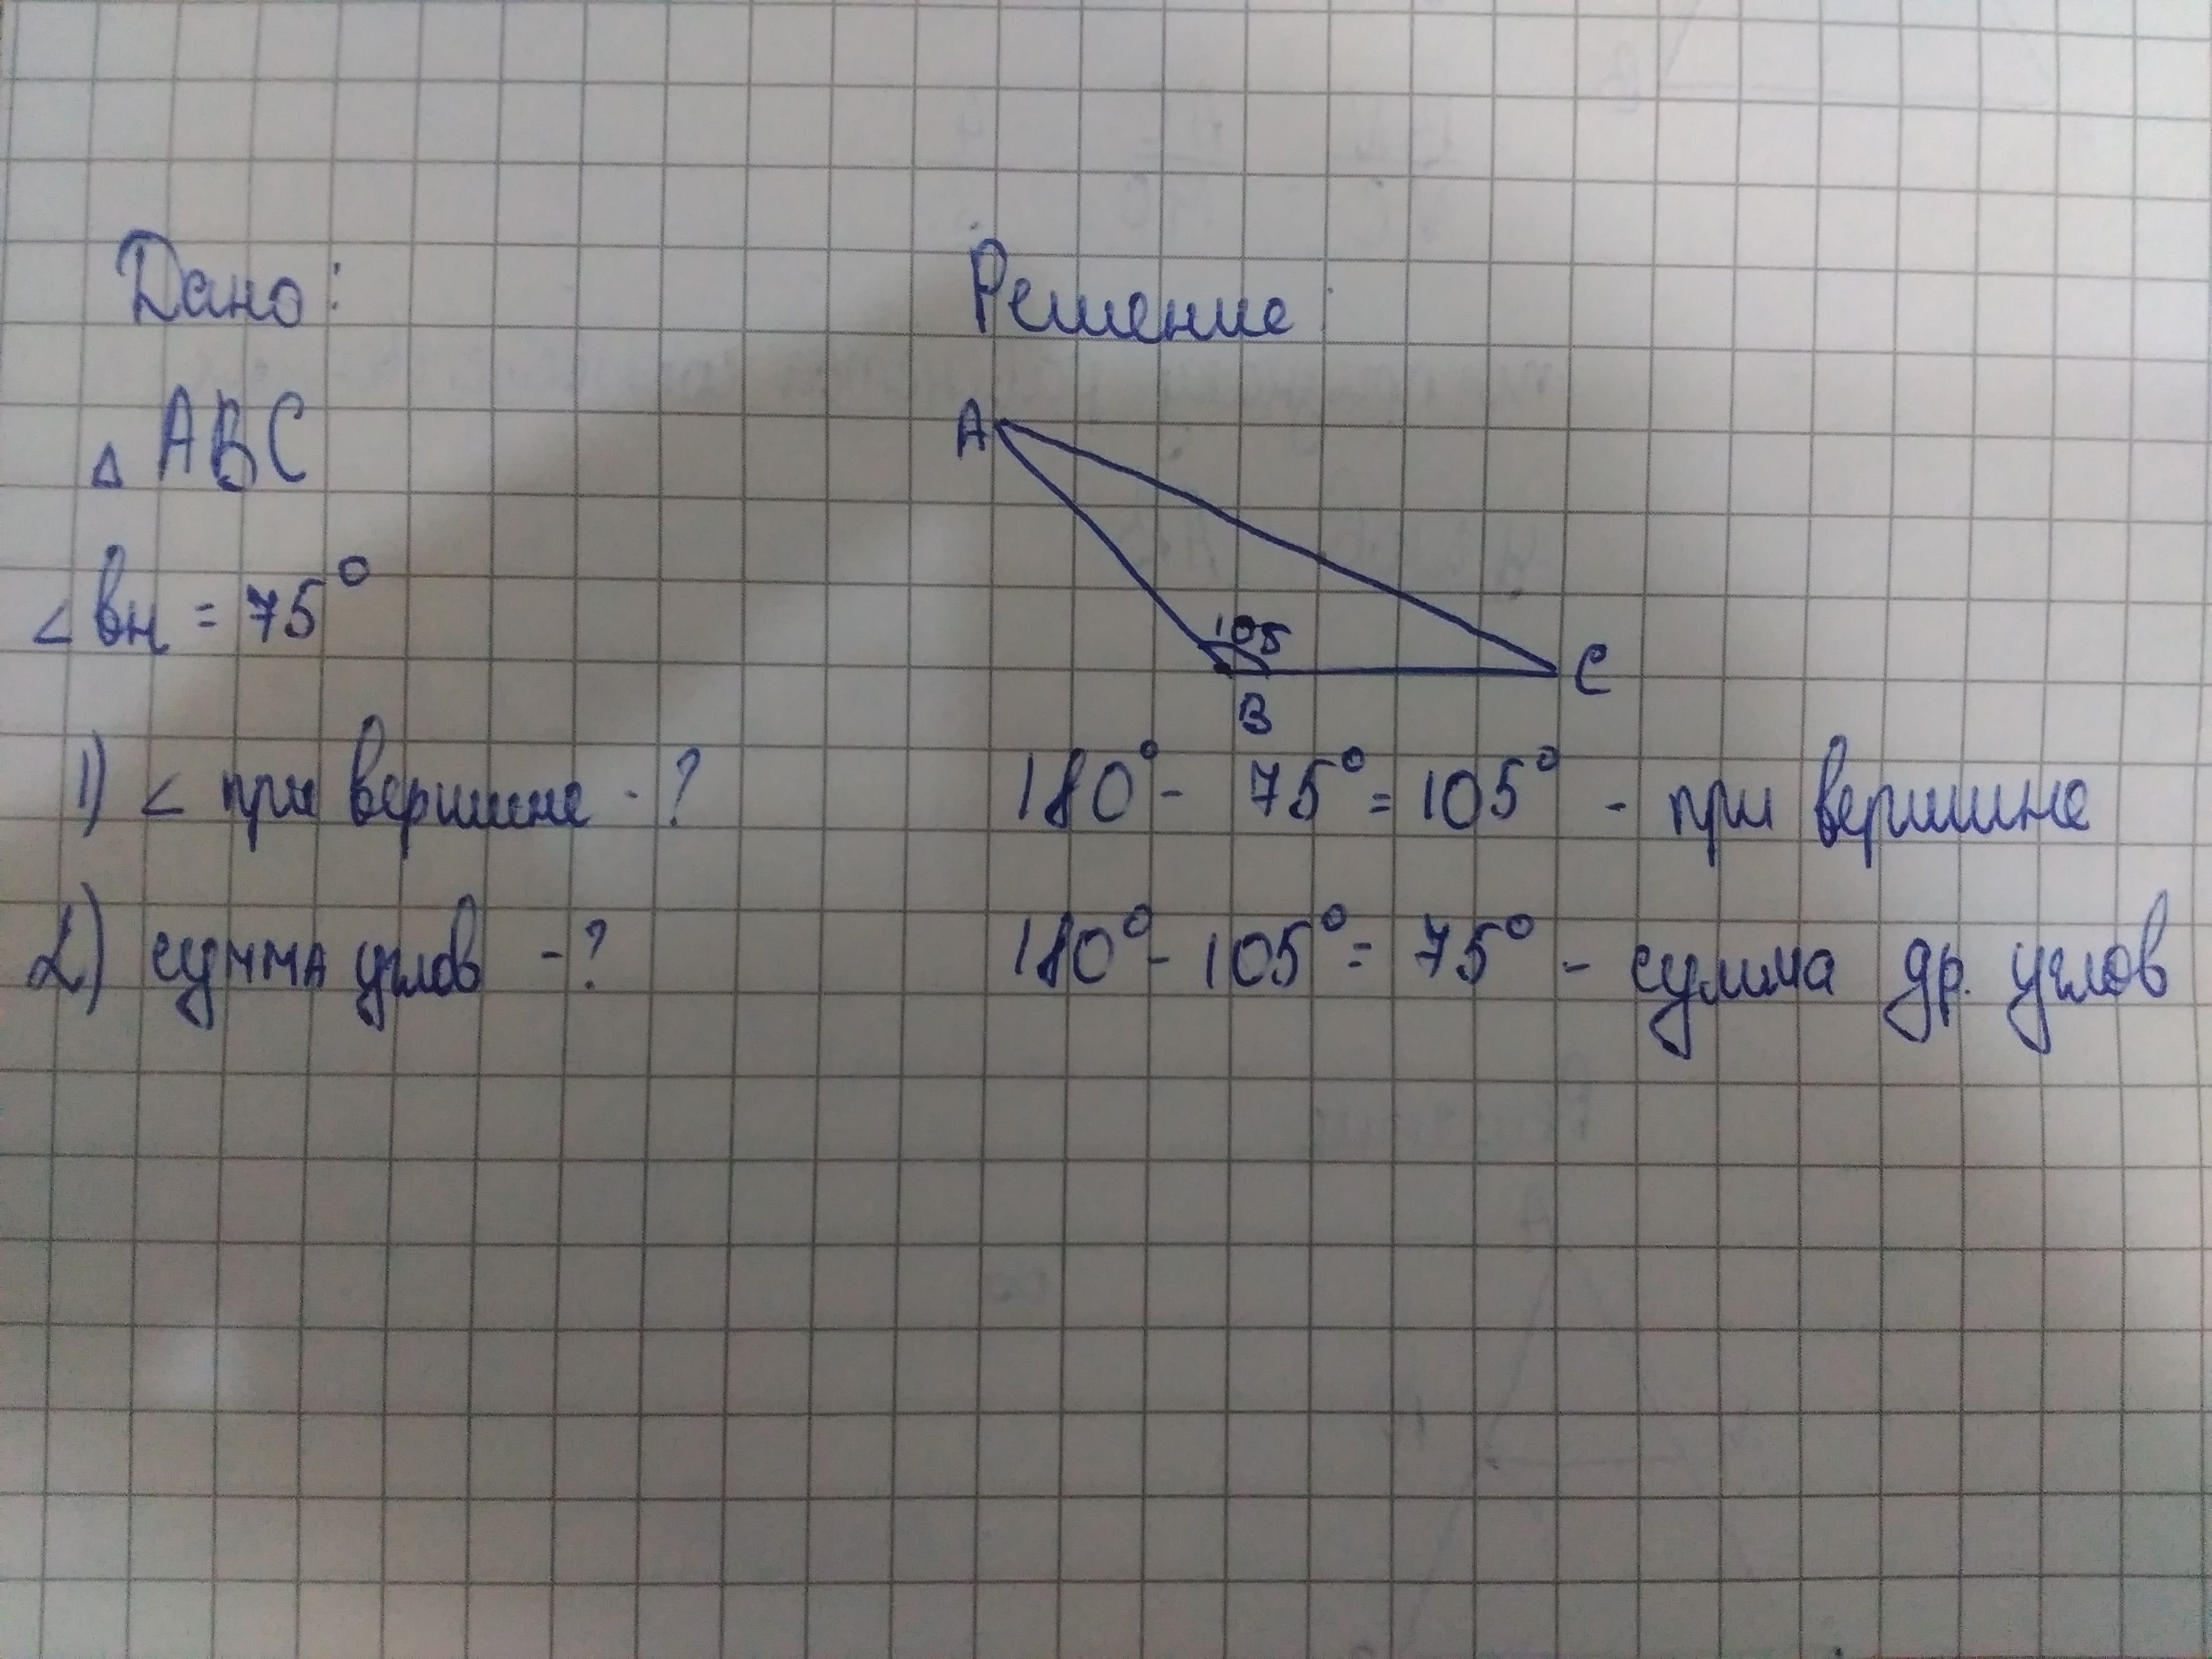 Дано:
Решение:
△ ABC
A
∠ вн = 75°
105
C
B
1) ∠ при вершине - ?
180° - 75° = 105° - при вершине
2) сумма углов - ?
180° - 105° = 75° - сумма др. углов